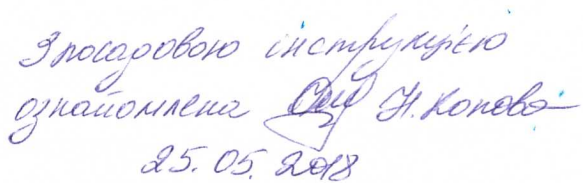 З посадовою інструкцією
ознайомлена Н. Попова
25.05.2018